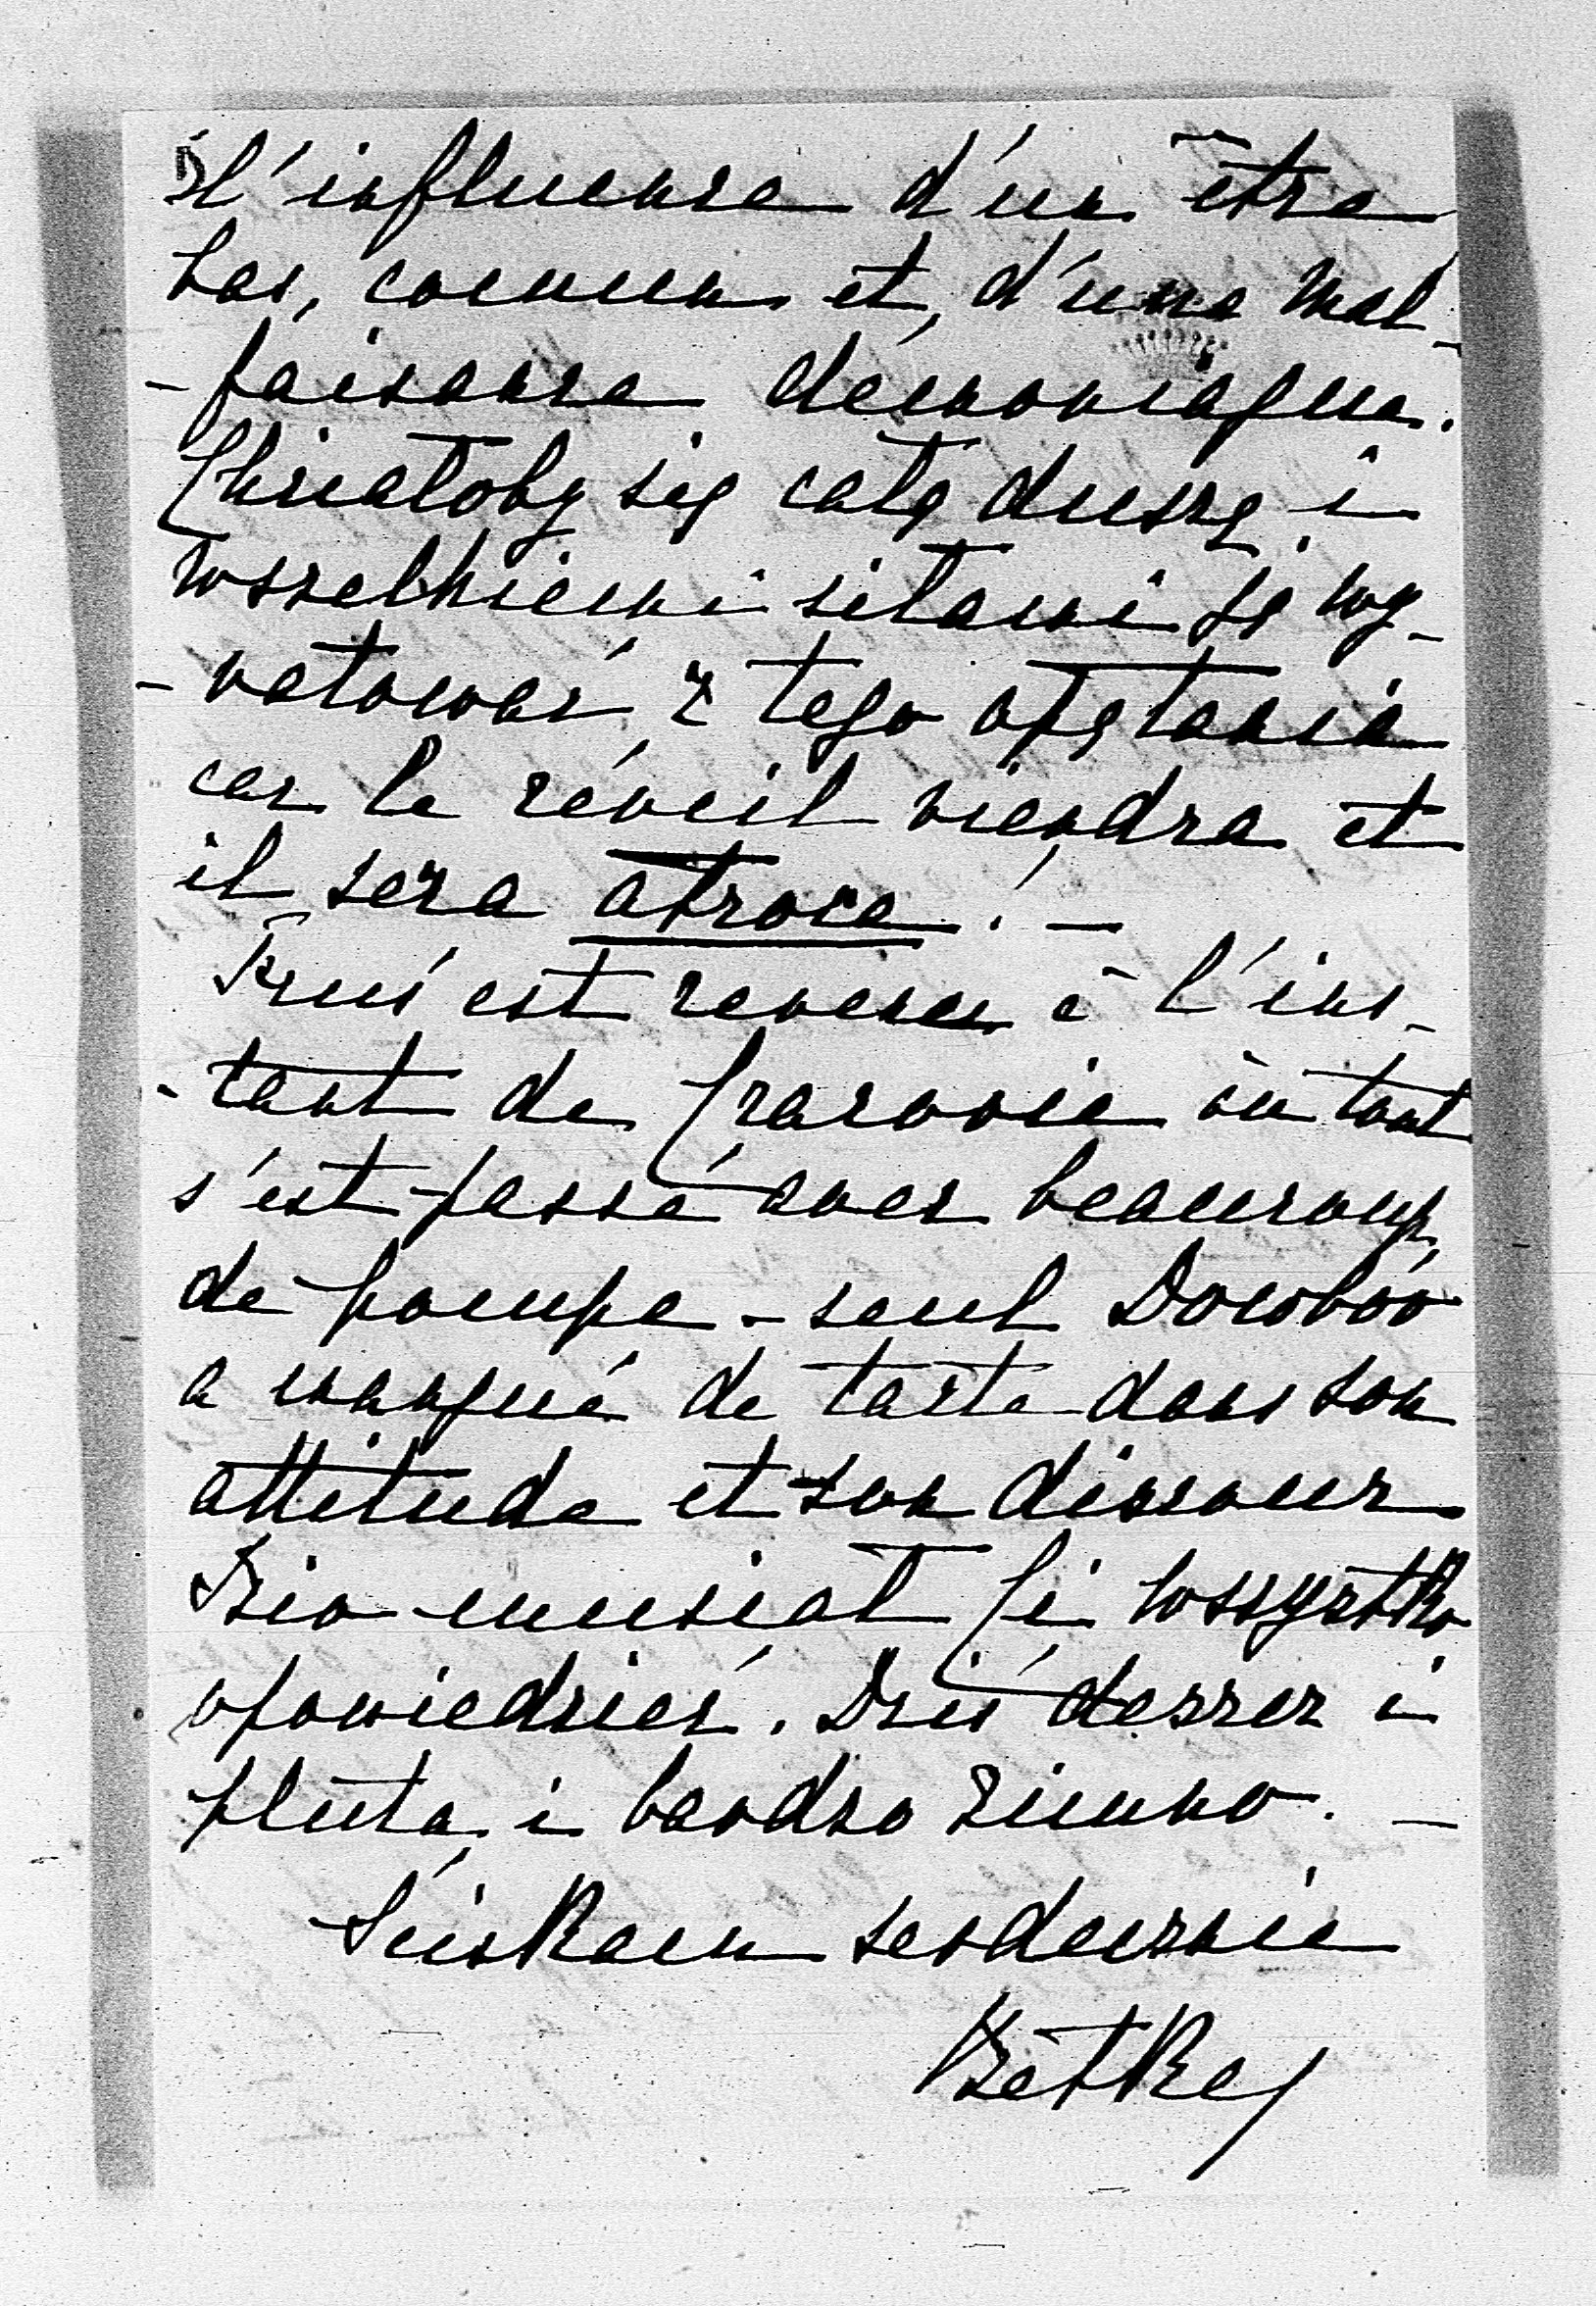 l'influence d'un être
bas, commun et, d'une mal-
-faisance démoniaque.
Chciałoby się całą duszą i
wszelkiemi siłami ją wy-
-ratować z tego opętania
car le réveil viendra et
il sera atroce! —
est revenu à l'ins-
-tant de Cracovie où tout
s'est passé avec beaucoup
de pompe - seul Dowbór
a manqué de tacte dans son
attitude et son discours
musiał Ci wszystko
opowiedzieć. Dziś deszcz i
pluta i bardzo zimno. —
Ściskam serdecznie
Betka